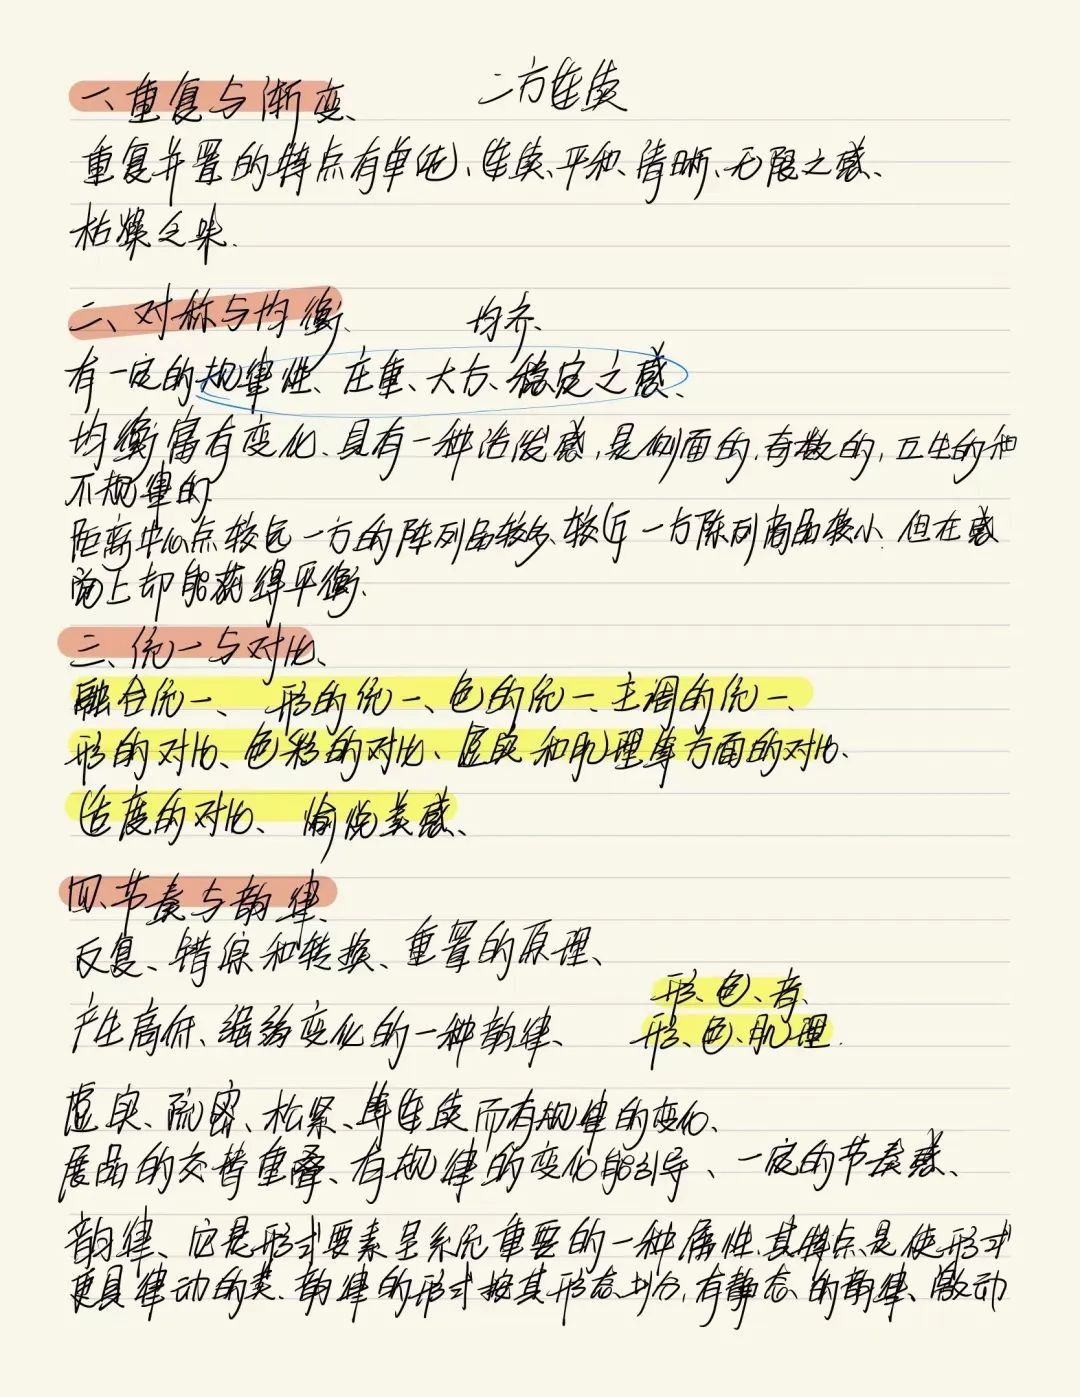 一、重复与渐变、 二方连续
重复并置的特点有单纯、连续、平和、清晰、无限之感、
枯燥之味.
二、对称与均衡、 均齐、
有一定的规律性、庄重、大方、稳定之感、
均衡富有变化、具有一种活泼感,是侧面的,奇数的,互生的和
不规律的
距离中心点较远一方的陈列品较多,较近一方陈列商品较小 但在感
觉上却能获得平衡.
三、统一与对比、
融合统一、 形的统一、色的统一、主调的统一、
形的对比、色彩的对比、虚实和肌理等方面的对比、
适度的对比、愉悦美感、
四、节奏与韵律、
反复、错综和转换、重置的原理、
形、色、音、
产生高低、强弱变化的一种韵律、 形、色、肌理.
虚实、疏密、松紧、等连续而有规律的变化、
展品的交替重叠、有规律的变化能引导、一定的节奏感、
韵律、它是形式要素呈系统重要的一种属性,其特点是使形式
更具律动的美、韵律的形式按其形态划分,有静态的韵律、激动